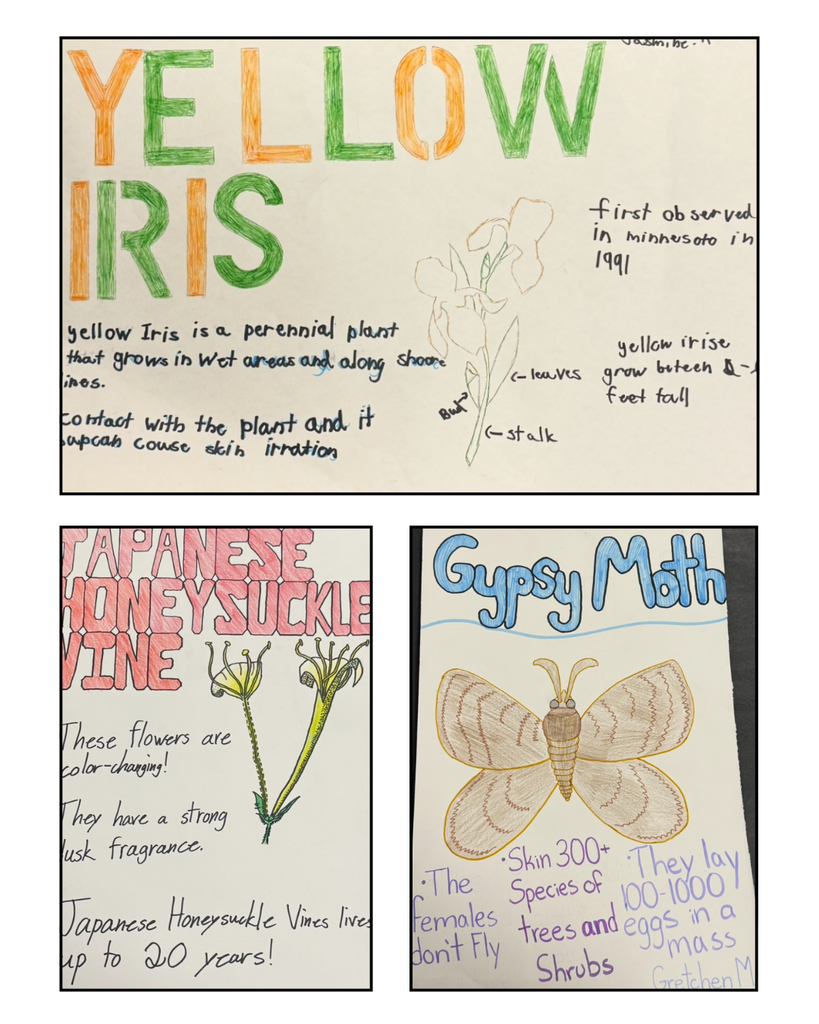 Jasmine.
YELLOW
IRIS
first observed
in minnesota in
1991
yellow Iris is a perennial plant
that grows in wet areas and along shoore
ines.
yellow irise
grow beteen
feet tall
<-leaves
Bud->
<-stalk
contact with the plant and it
couse skin irration
JAPANESE
HONEYSUCKLE
VINE
These flowers are
color-changing!
They have a strong
usk fragrance.
Japanese Honeysuckle Vines lives
up to 20 years!
Gypsy Moth
•The
females
don't Fly
•Skin 300+
Species of
trees and
Shrubs
•They lay
100-1000
eggs in a
mass
Gretchen M